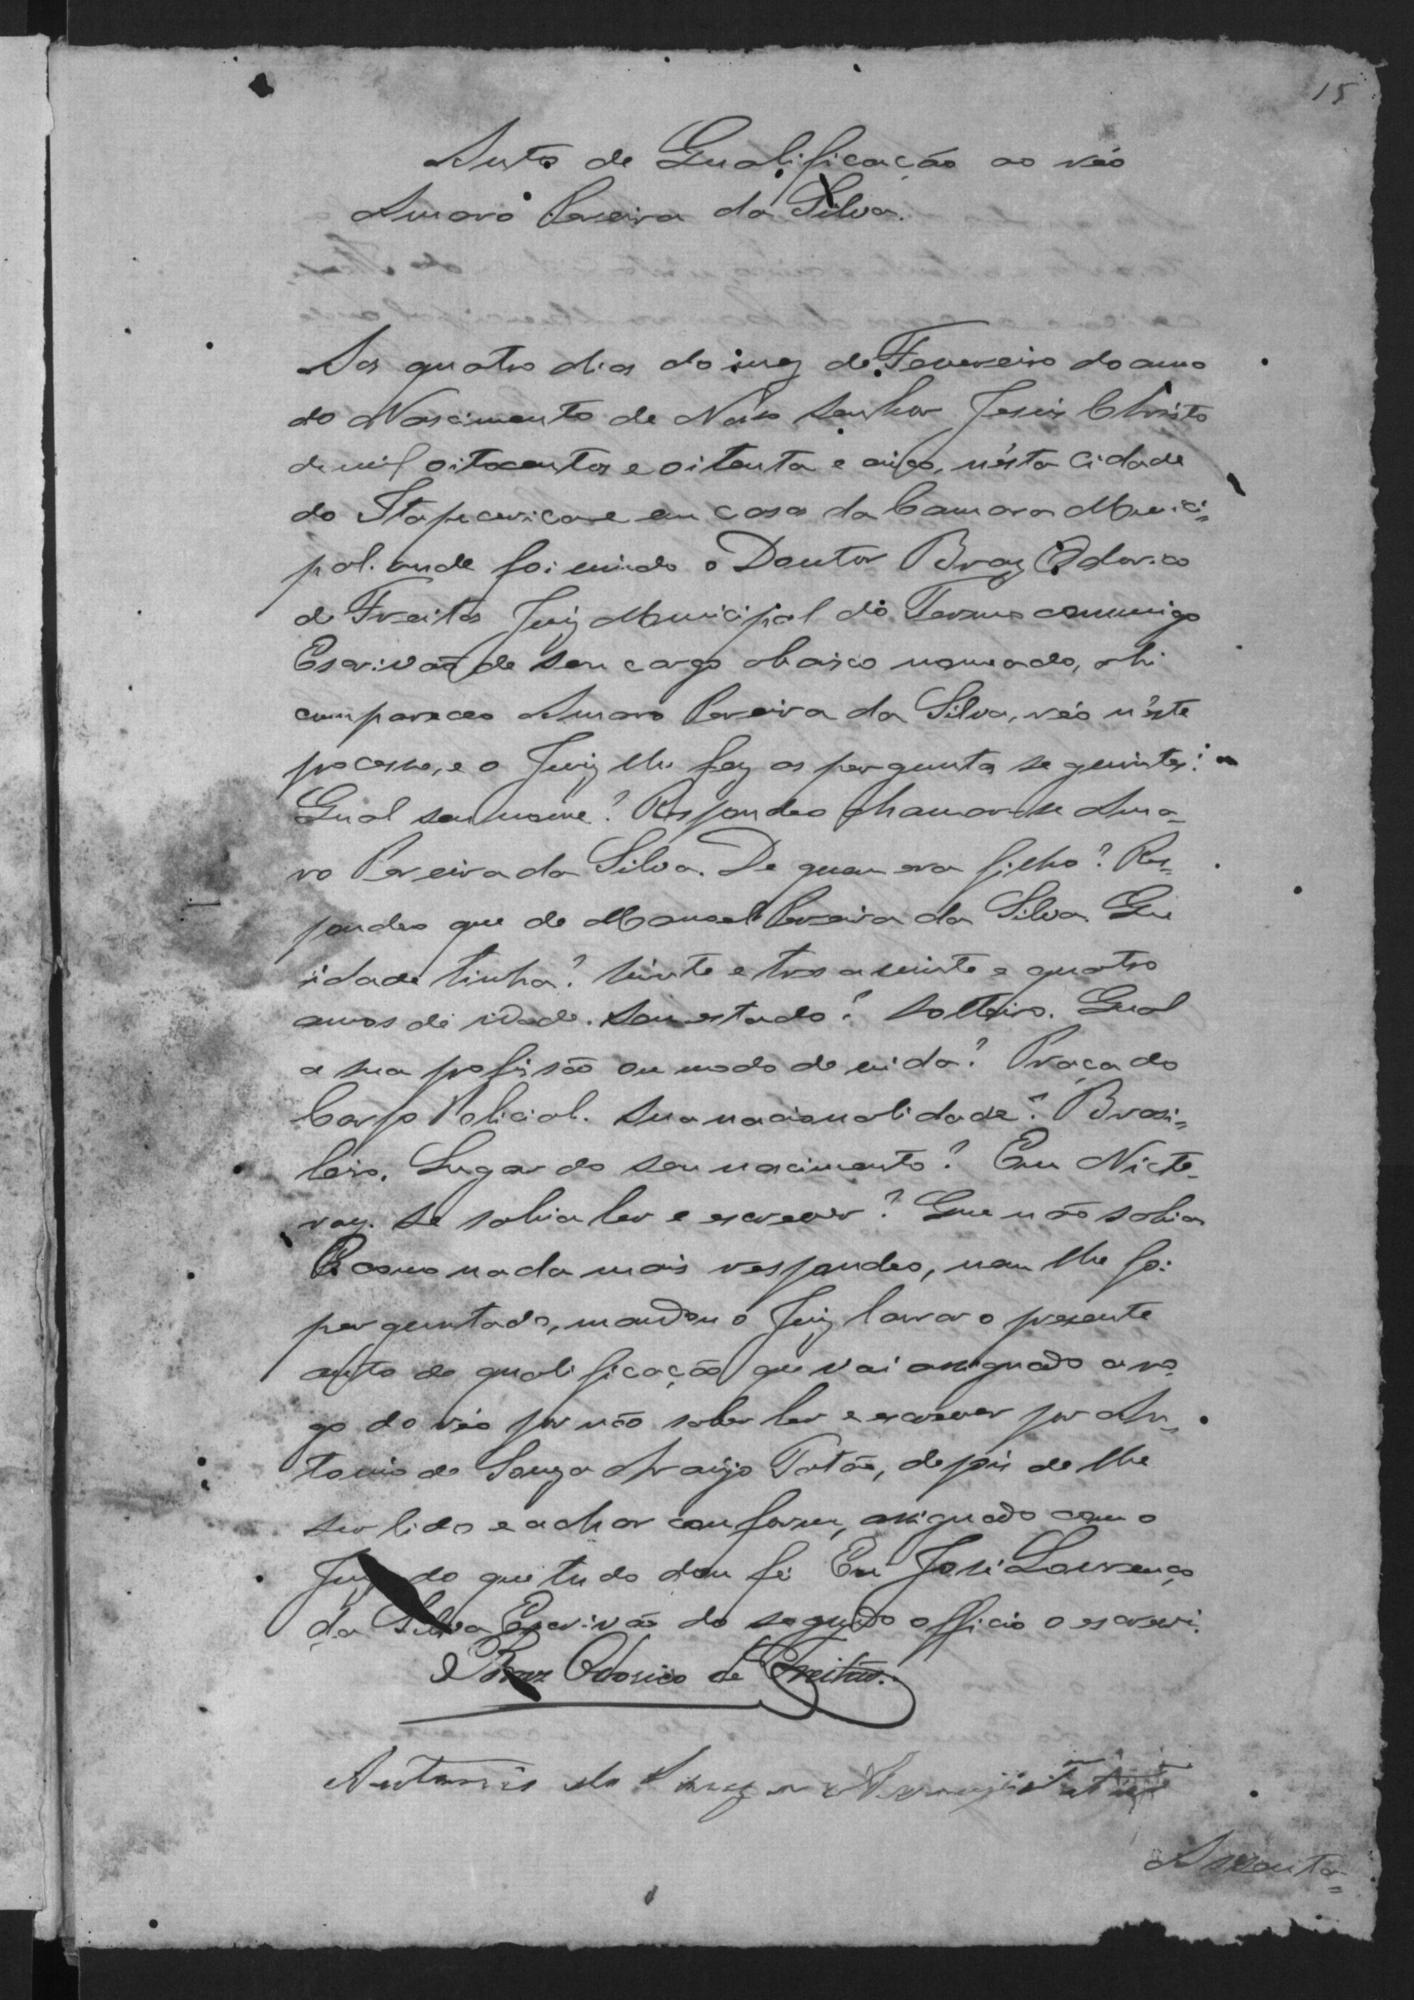 15
Auto de Qualificação ao réo
Amaro Pereira da Silva.
Aos quatro dias do mez de Fevereiro do anno
do Nascimento de Nosso Senhor Jesus Christo
de mil oitocentos e oitenta e cinco, nésta cidade
do Itapecerica e em casa da Camara Munici=
pal. onde foi vindo o Doutor Braz Odorico
de Freitas Juiz Municipal do Termo commigo
Escrivão de seu cargo abaixo nomeado, ahi
compareceo Amaro Pereira da Silva, réo n'éste
processo, e o Juiz lhe fez as perguntas seguintes:
Qual seu nome? Respondeo chamar-se Ama=
ro Pereira da Silva. De quem era filho? Res=
pondeo que de Manoel Pereira da Silva. Que
idade tinha? Vinte e tres a vinte e quatro
annos de idade. Seu estado? Solteiro. Qual
a sua profissão ou modo de vida? Praça do
Corpo Policial. Sua nacionalidade? Brasi=
leiro. Lugar do seu nascimento? Em Nicte=
roy. Se sabia ler e escrever? Que não sabia
E como nada mais respondeo, nem lhe foi
perguntado, mandou o Juiz lavrar o presente
auto de qualificação que vai assignado a ro=
go do réo por não saber ler e escrever por An=
tonio de Souza Araujo Tatão, depois de lhe
ser lido e achar conforme, assignado com o
Juiz do que tudo dou fé Eu José Lourenço
da Silva Escrivão do segundo officio o escrevi.
Braz Odorico de Freitas.
Antonio de Souza Araujo Tatão
Assenta=